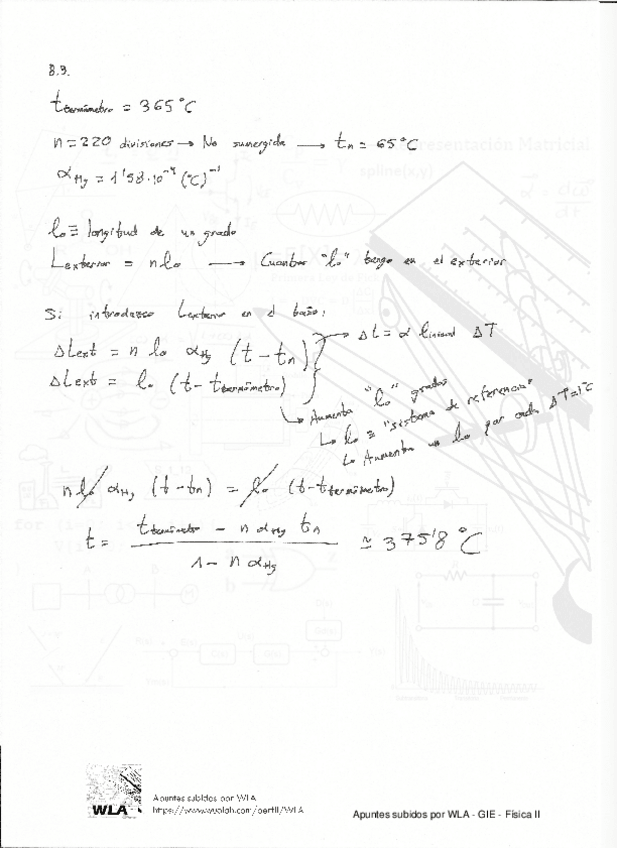 B.3.
t termómetro = 365°C
n = 220 divisiones → No sumergida → tn = 65°C
αHg = 1'58·10⁻⁴ (°C)⁻¹
l₀ ≡ longitud de un grado
Lexterior = n l₀ → Cuantos "l₀" tengo en el exterior
Si introduzco Lexterior en el baño:
ΔLext = n l₀ αHg (t - tn) → ΔL = α lineal ΔT
ΔLext = l₀ (t - ttermómetro)
↳ Aumenta "l₀" grados
↳ l₀ ≡ "sistema de referencia"
↳ Aumenta un l₀ por cada ΔT=1°C
n l₀ αHg (t - tn) = l₀ (t - ttermómetro)
t = (ttermómetro - n αHg tn) / (1 - n αHg) ≃ 375'8 °C
presentación Matricial
spline(x,y)
WLA
Apuntes subidos por WLA
https://www.wuolah.com/perfil/WLA
Apuntes subidos por WLA - GIE - Física II